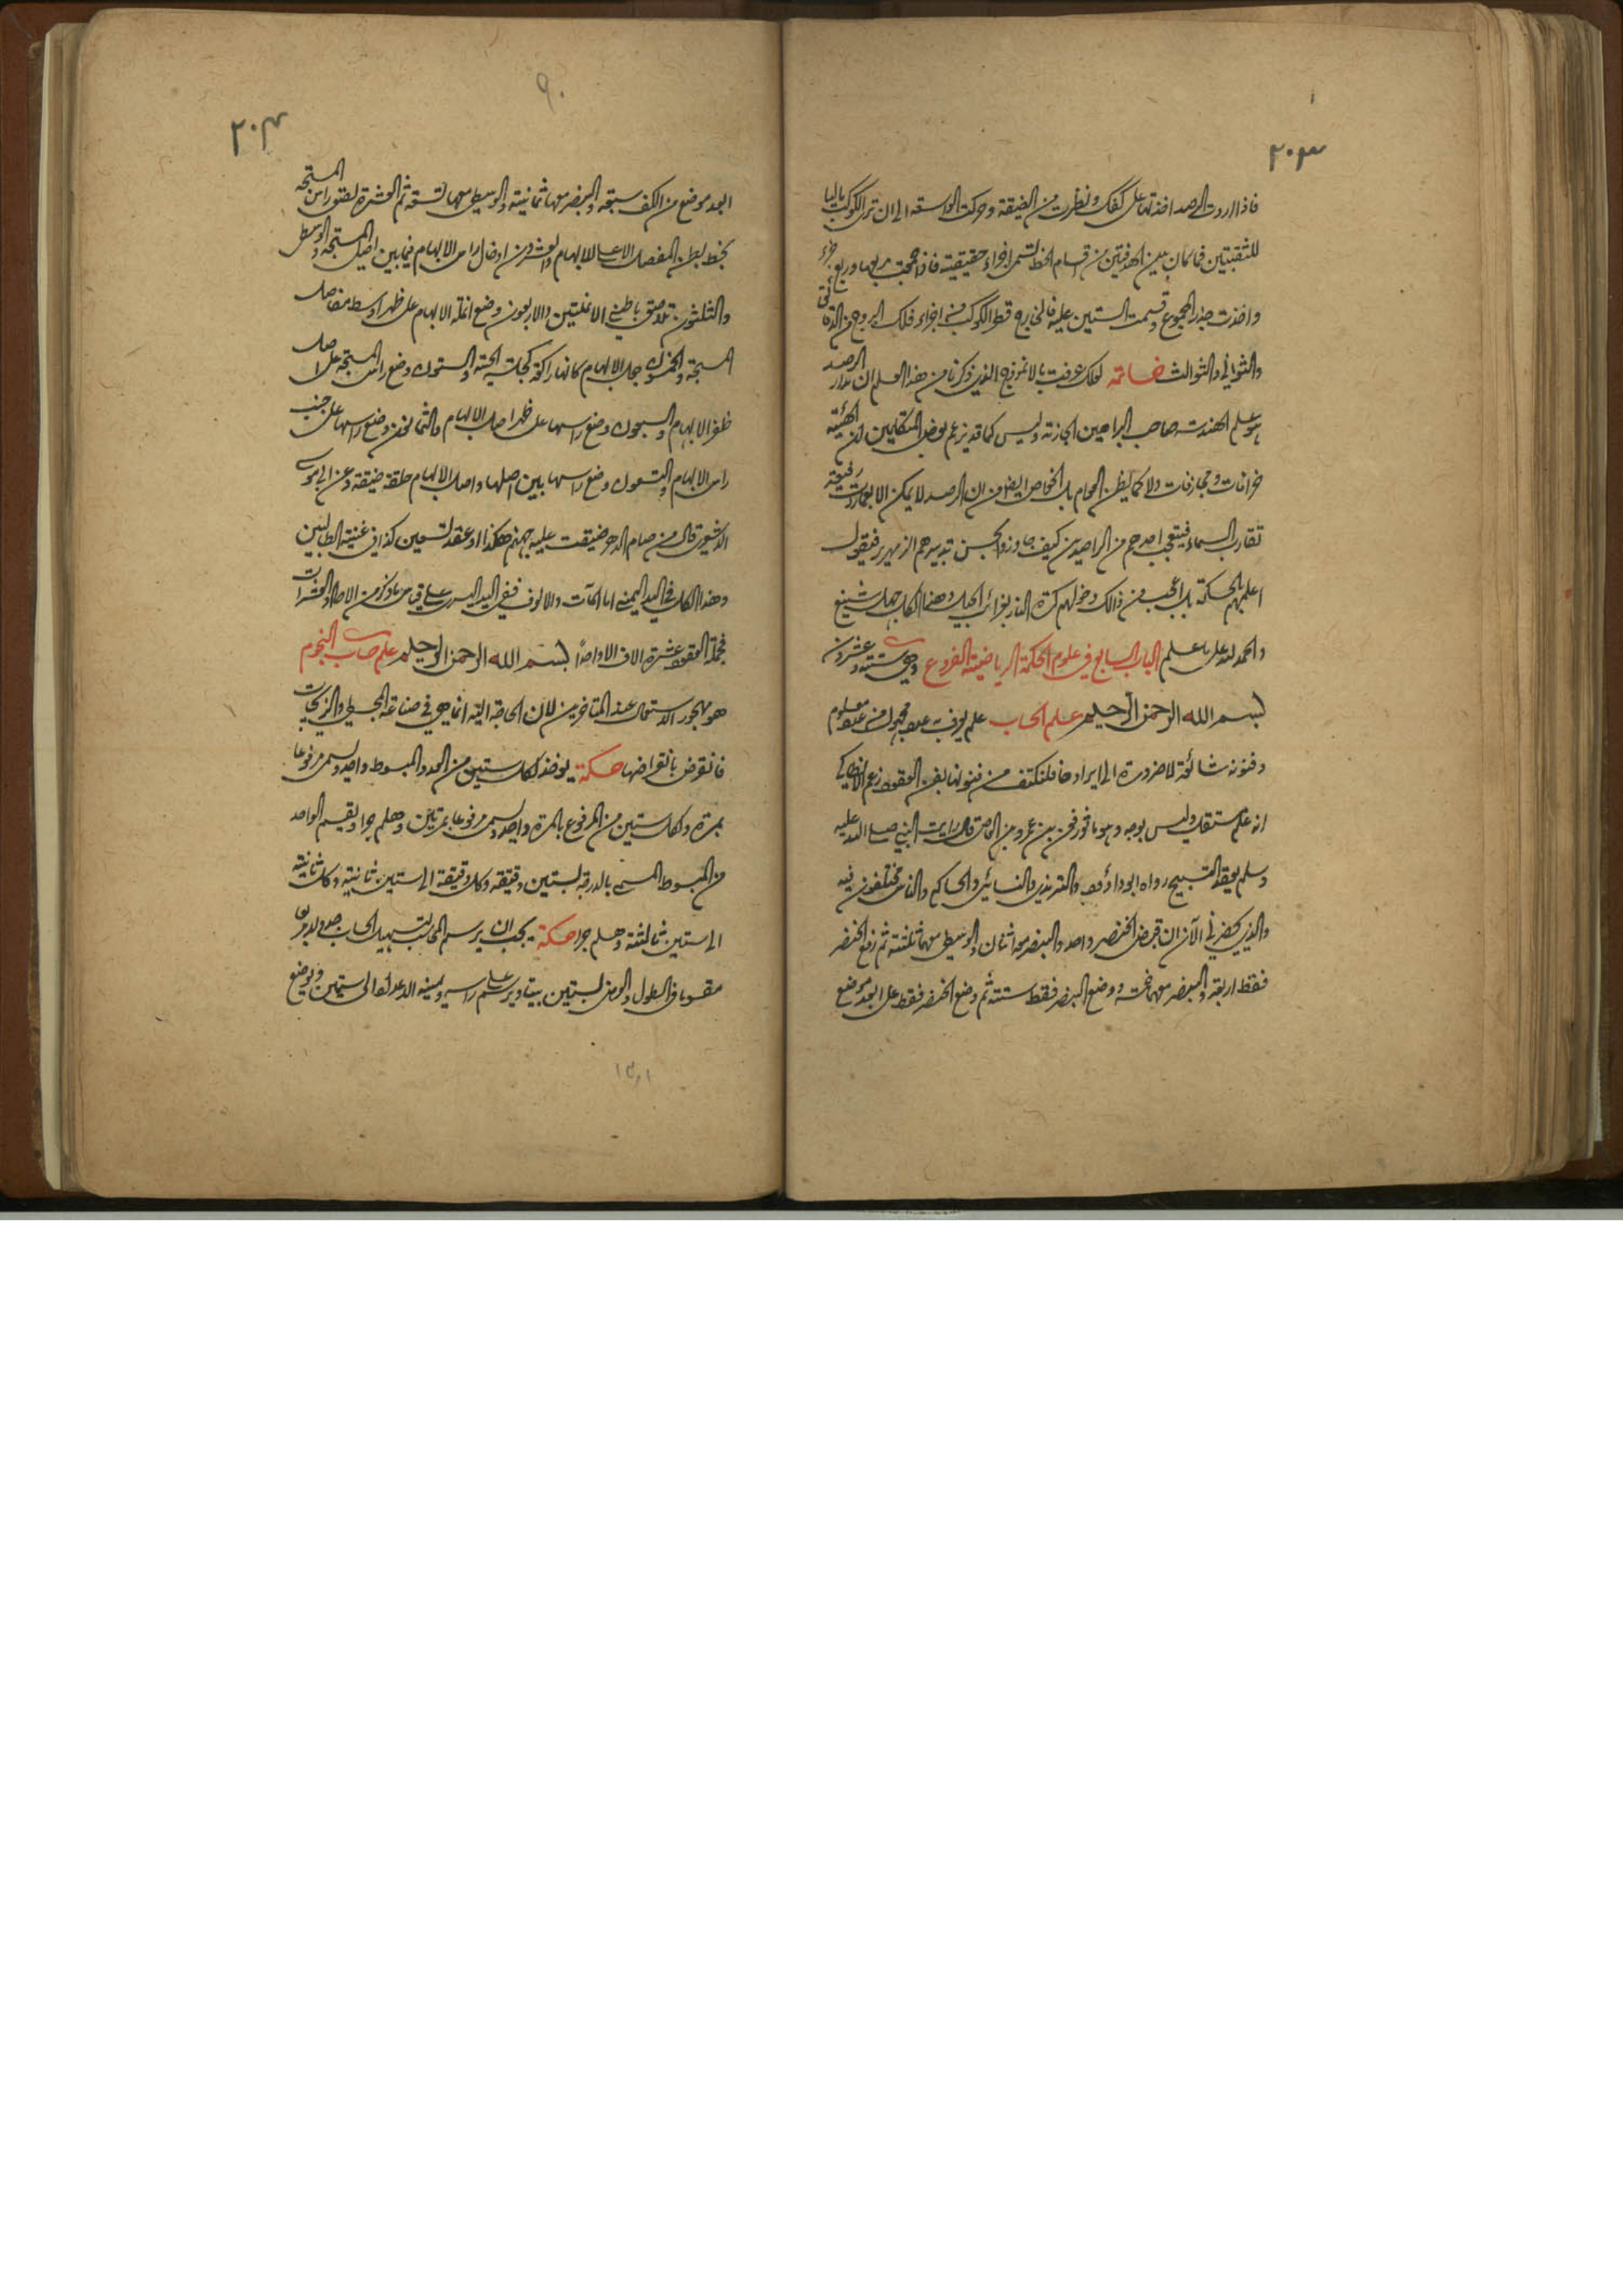 ٢٠٣
فاذا اردت الرصد اخذتها على كفك ونظرت من الضيقة وحركت الواسعة الى ان ترى الكوكب مالیا
للثقبتين فما كان بين الهدفتين من اقسام الخط تسمى اجزاء حقيقية فاذا جمعت مربعها ومربع جزء
واخذت جذر المجموع وقسمت الستين عليه فالخارج قطر الكوكب من اجزاء فلك البروج من الدقائق
والثواني والثوالث خاتمه لعلك عرفت بالانموذج الذي ذكرنا من هذا العلم ان مدار الرصد
هو علم الهندسه صاحب البراهين الجازمة وليس كما قد يزعم بعض المتكلمين ان الهيئة
خرافات ومجازفات ولا كما يظن العوام بل الخواص ايضا من ان الرصد لا يمكن الا بعمارت رفيعة
تقارب السماء فيتعجب احدهم من الراصدين كيف جاوزوا بحسن تدبيرهم الزمهرير فيقول
اعلمهم بالحكمة بل اعجب من ذالك دخولهم كرة النار بغرائب الحيل وهذا الكل جهل شنيع
والحمد لله على ما علم الباب السابع في علوم الحكمة الرياضية الفروع وهي ستة وعشرون
بسم الله الرحمن الرحيم علم الحساب علم يعرف به عدد مجهول من عدد معلوم
وفنونه شائعة لا ضرورة الى ايرادها فلنكتف من فنونها بفن العقود زعم الانطاكي
انه علم مستقل وليس بوجه وهو ماثور فعن بن عمرو بن العاص قال رايت النبي صلى الله عليه
وسلم يعقد التسبيح رواه ابو داؤد والترمذي والنسائي والحاكم والناس مختلفون فيه
والذي يحضرني الآن ان قبض الخنصر واحد والبنصر معه اثنان والوسطى معهما ثلثة ثم رفع الخنصر
فقط اربعة والبنصر معهما خمسة ووضع البنصر فقط ستة ثم وضع الخنصر فقط على ابعد موضع
٩٠
٢٠٤
ابعد موضع من الكف سبعة والبنصر معها ثمانية والوسطى معهما تسعة ثم العشرة لصقوق راس المسبحة
بخط بطن المفصل الاعلى للابهام والعشرون ادخال راس الابهام فيما بين اصلى المسبحة والوسطى
والثلثون تلاصق باطني الانملتين والاربعون وضع انملة الابهام على ظهر اوسط مفاصل
المسبحة والخمسون جعل الابهام كانها راكعة كجلسة الحية والستون وضع راس المسبحة على اصل
ظفر الابهام والسبعون وضع راسها على ظهر اصل الابهام والثمانون وضع راسها على جنب
راس الابهام والتسعون وضع راسها بين اصلها واصل الابهام حلقة ضيقة وعن ابي موسى
الاشعري قال من صام الدهر ضيقت عليه جهنم هكذا وعقد تسعين كذا في غنية الطالبين
وهذا الكل في اليد اليمنى اما المآت والالوف ففي اليد اليسرى على قياس ما ذكر من الاحاد والعشرات
فجملة العقود عشرة الاف الا واحدا بسم الله الرحمن الرحيم علم حساب النجوم
هو مهجور الاستعمال عند المتاخرين لان الحاجة اليه انما هي في صناعة المجسطي والزيجات
فانقرض بانقراضها حكمة يوخذ لكل ستين من العدد المبسوط واحد ويسمى مرفوعا
بمرة ولكل ستين من المرفوع بالمرة واحد ويسمى مرفوعا بمرتين وهلم جرا ويقسم الواحد
من المبسوط المسمى بالدرجة لستين دقيقه وكل دقيقة الى ستين ثانيته وكل ثانيته
الى ستين ثالثته وهلم جرا حكمة يجب ان يرسم المحاسب لتسهيل الحساب جدولا مربعا
مقسوما في الطول والعرض لستين بيتا ويرسم على راسه ويمينه الاعداد الى ستين ويوضع